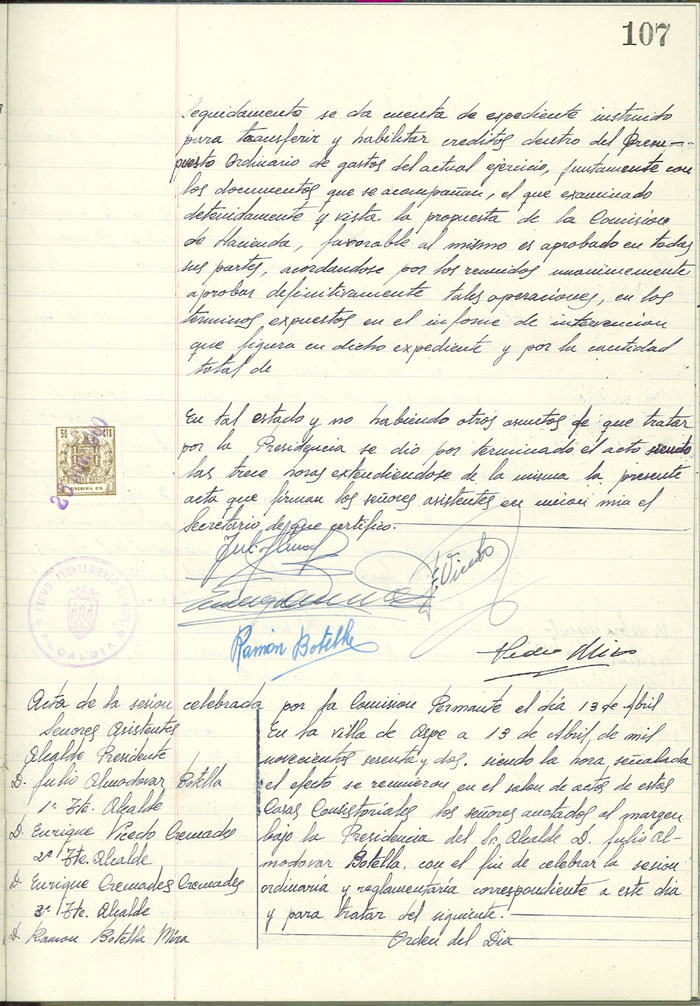 107
Seguidamente se da cuenta de expediente instruido
para transferir y habilitar creditos dentro del Presu-
puesto Ordinario de gastos del actual ejercicio, juntamente con
los documentos que se acompañan, el que examinado
detenidamente y vista la propuesta de la Comision
de Hacienda, favorable al mismo es aprobado en todas
sus partes, acordandose por los reunidos unanimemente
aprobar definitivamente tales operaciones, en los
terminos expuestos en el informe de intervencion
que figura en dicho expediente y por la cantidad
total de
En tal estado y no habiendo otros asuntos de que tratar
por la Presidencia se dio por terminado el acto siendo
las trece horas extendiendose de la misma la presente
acta que firman los señores asistentes en union mia el
Secretario, de que certifico.
50 CTS
AYUNTAMIENTO DE
ALCALDIA
Vicedo
Ramón Botella
Acta de la sesion celebrada por la Comision Permante el dia 13 de Abril
Señores Asistentes
Alcalde Presidente
D. Julio Almodovar Botella
1º Tte. Alcalde
D. Enrique Vicedo Cremades
2º Tte. Alcalde
D. Enrique Cremades Cremades
3º Tte. Alcalde
D. Ramon Botella Mira
En la villa de Aspe a 13 de Abril, de mil
novecientos sesenta y dos. siendo la hora, señalada
el efecto se reunieron en el salon de actos de estas
Casas Consistoriales los señores anotados al margen
bajo la Presidencia del Sr. Alcalde D. Julio Al-
modovar Botella, con el fin de celebrar la sesion
ordinaria y reglamentaria correspondiente a este dia
y para tratar del siguiente.
Orden del Dia